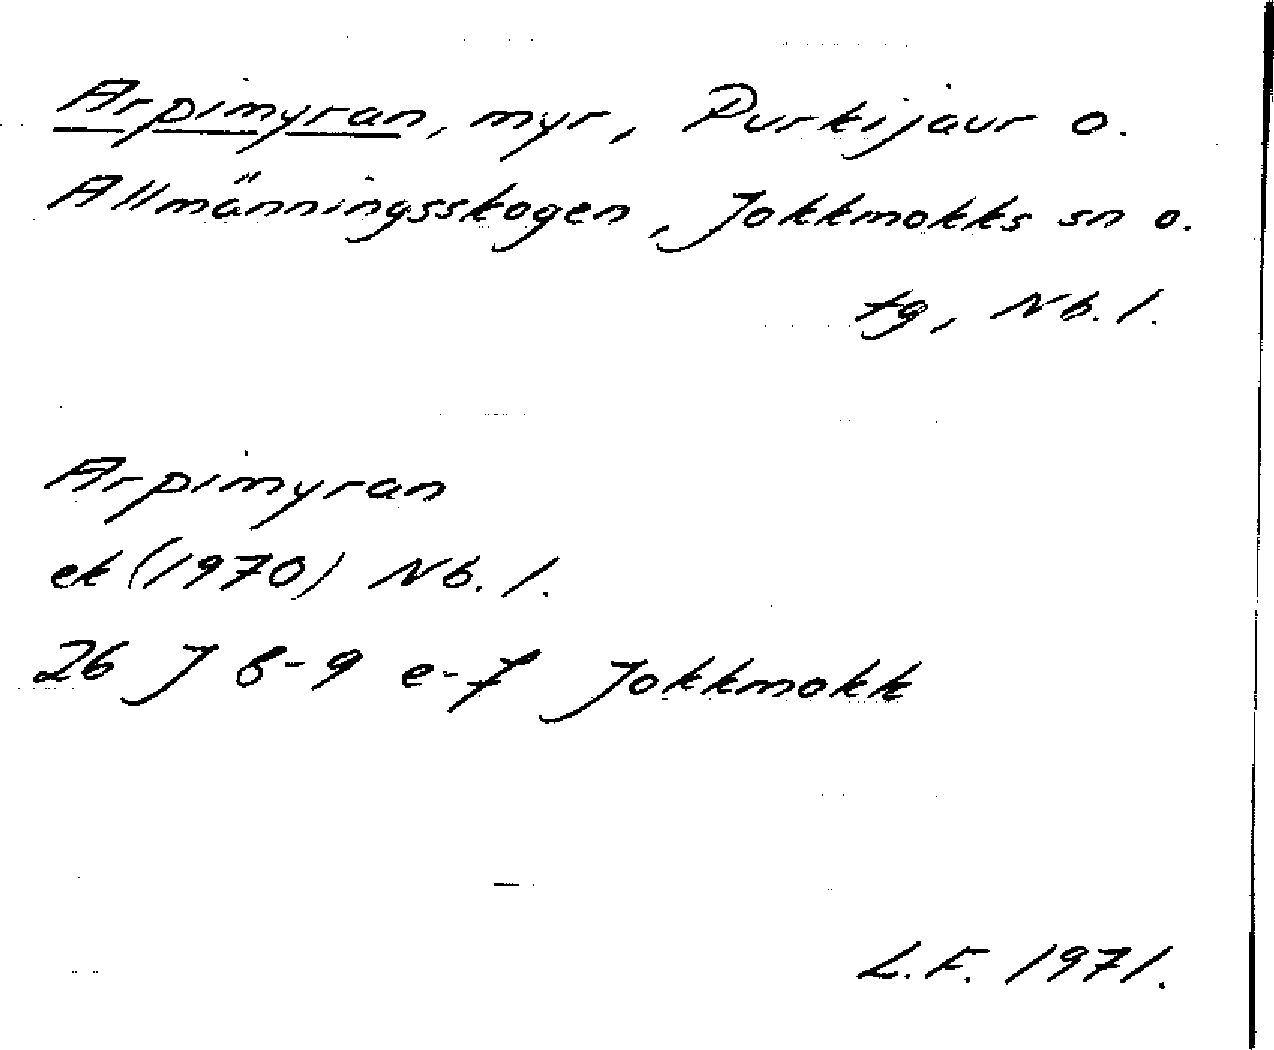 Arpimyran, myr, Purkijaur o.
Allmänningsskogen, Jokkmokks sn o.
tg, Nb. l.
Arpimyran
ek (1970) Nb. l.
26 J 8-9 e-f Jokkmokk
L.F. 1971.